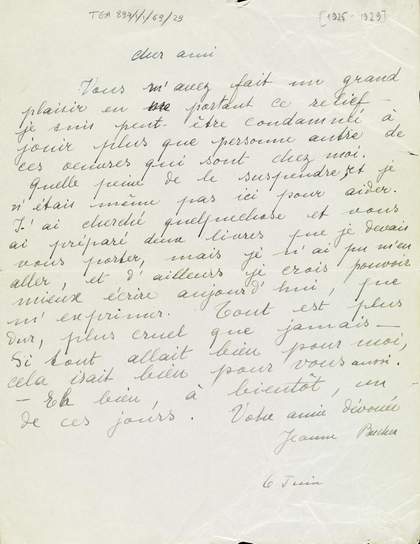 TGA 897/1/1/69/29 [1925-1929]
cher ami
Vous m'avez fait un grand
plaisir en portant ce relief —
je suis peut-être condamnée à
jouir plus que personne autre de
ces oeuvres qui sont chez moi.
Quelle peine de le suspendre et je
n'étais même pas ici pour aider.
J'ai cherché quelquechose et vous
ai préparé deux livres que je devais
vous porter, mais je n'ai pu m'en
aller, et d'ailleurs je crois pouvoir
mieux écrire aujourd'hui, que
m'exprimer. Tout est plus
dur, plus cruel que jamais —
Si tout allait bien pour moi,
cela irait bien pour vous aussi.
— Eh bien, à bientôt, un
de ces jours. Votre amie dévouée
Jeanne Bucher
6 Juin